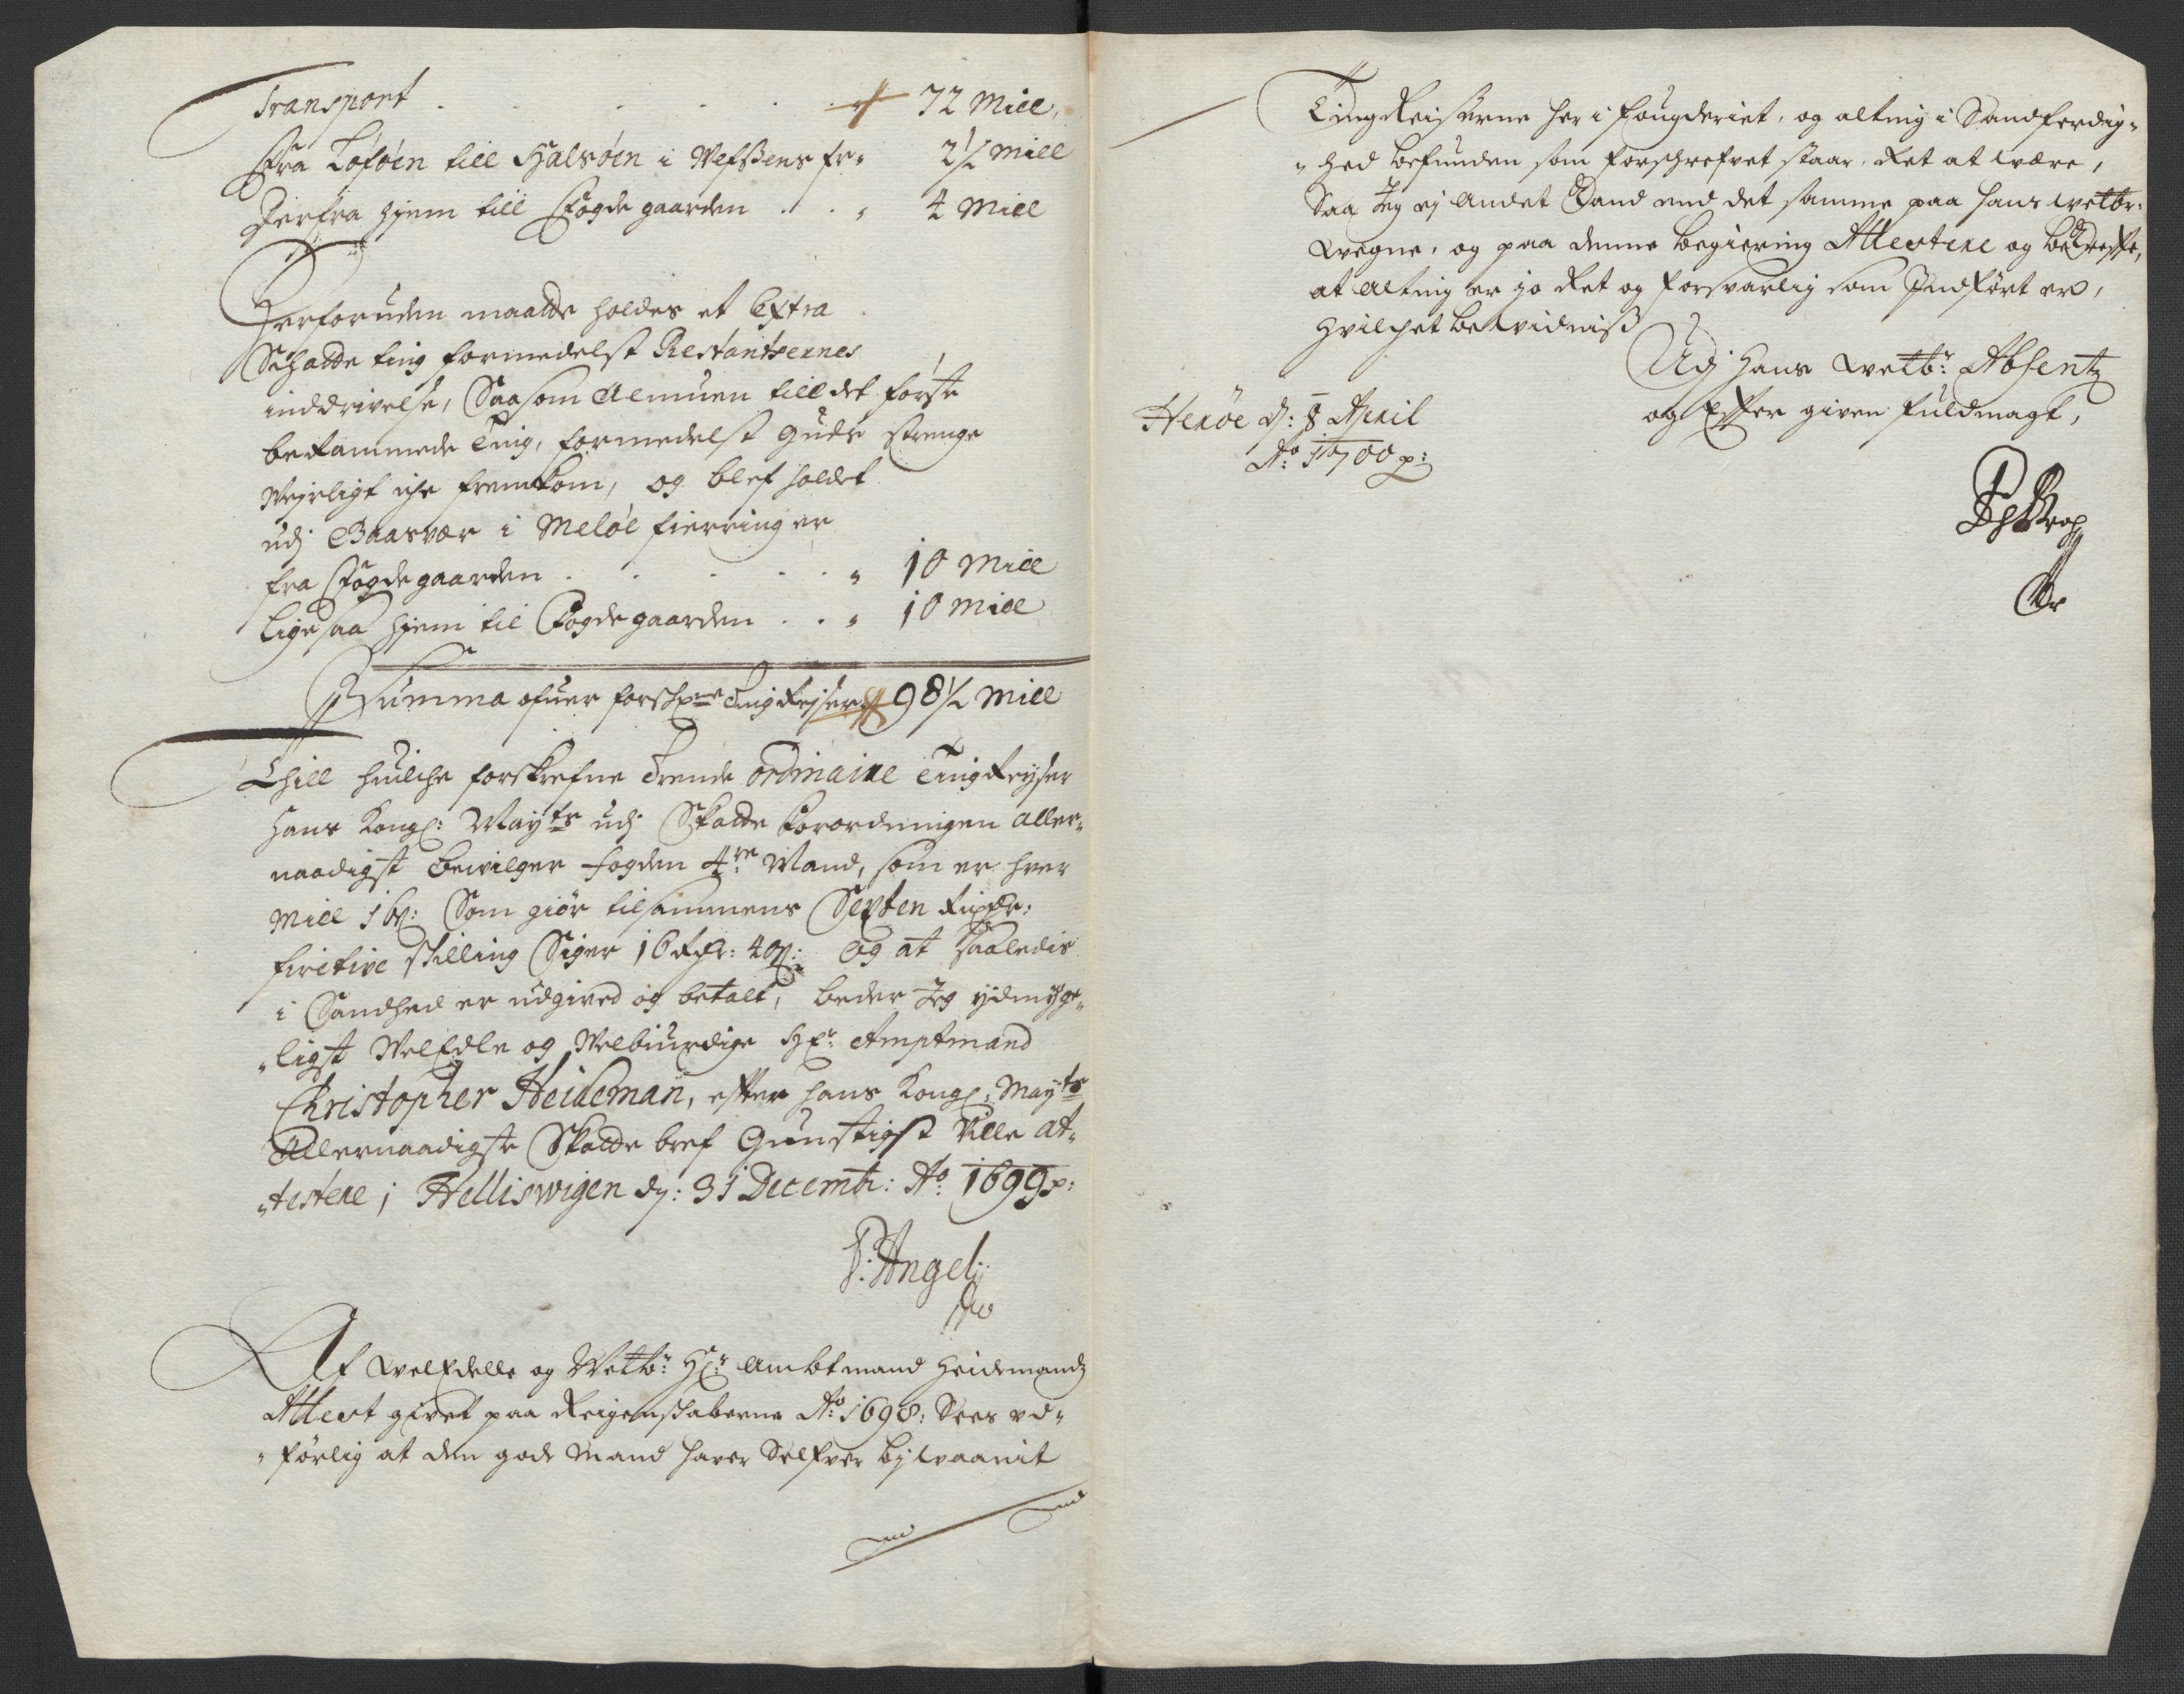 Transport . . . . . 72 Miil
Fra Löföen till Halsöen i Wefsens fr„ 2½ Miill
Derfra hjem till Fogde gaarden . . „ 4 Miil
Herforuden maatte holdes et Extra
Schatte ting formedelst Restantsernes
inddrivelse, Saasom Almuen till det förste
berammede Ting, formedelst Guds strenge
Wejrligt iche fremkom, og blef holdet
udj Baasvær i Melöe fierringer
fra Fogdegaarden . . . . . „ 10 Miil
Ligesaa hjem til Fogdegaarden . . „ 10 Miil
Summa ofver forschrne Ting Rejser 98½ Miil
Thill huilche forskrefne Trende ordinaire Ting Reyser
Hans Kongl: Mayts udj Skatte Forordningen aller„
naadigst bevilger fogden 4re Mand, som er hver
Miil 16 s: Som giör tilsammens Sexten Rixdlr:
firetive skilling Siger 16 Rdlr: 40 s: Og at saaledis
i Sandhed er udgived og betalt, beder Jeg ydmyge„
„ligst WelEdle og Welbiurdige Hr: Amptmand
Christopher Heideman, efter Hans Kongl: Mayts
Allernaadigste Skatte bref Gunstigst Ville at„
„testere, Helliswigen dj: 31 Decembr: Ao 1699 p:
P: Angel:
Af WelEdelle og Welb: Hr: Ambtmand Heidemandz
Attest givet paa Reigenskaberne Ao 1698: Sees vd„
„förlig at den gode Mand haver Selfver bywaanit
Ting Reiserne her i fougderiet, og alting i Sandferdig„
„hed befunden som forschrefvet staar, Ret at være,
Saa Jeg ej andet Kand end det samme paa hans welbr:
Wegne, og paa denne begiering Attestere og bekrefte,
at alting er jo Ret og forsvarlig som Indfört er,
Hvilchet bewidnis
Udj Hans Welb: Absentz
og Effter given fuldmagt,
Heröe d: 8 April
Ao: 1700 p: